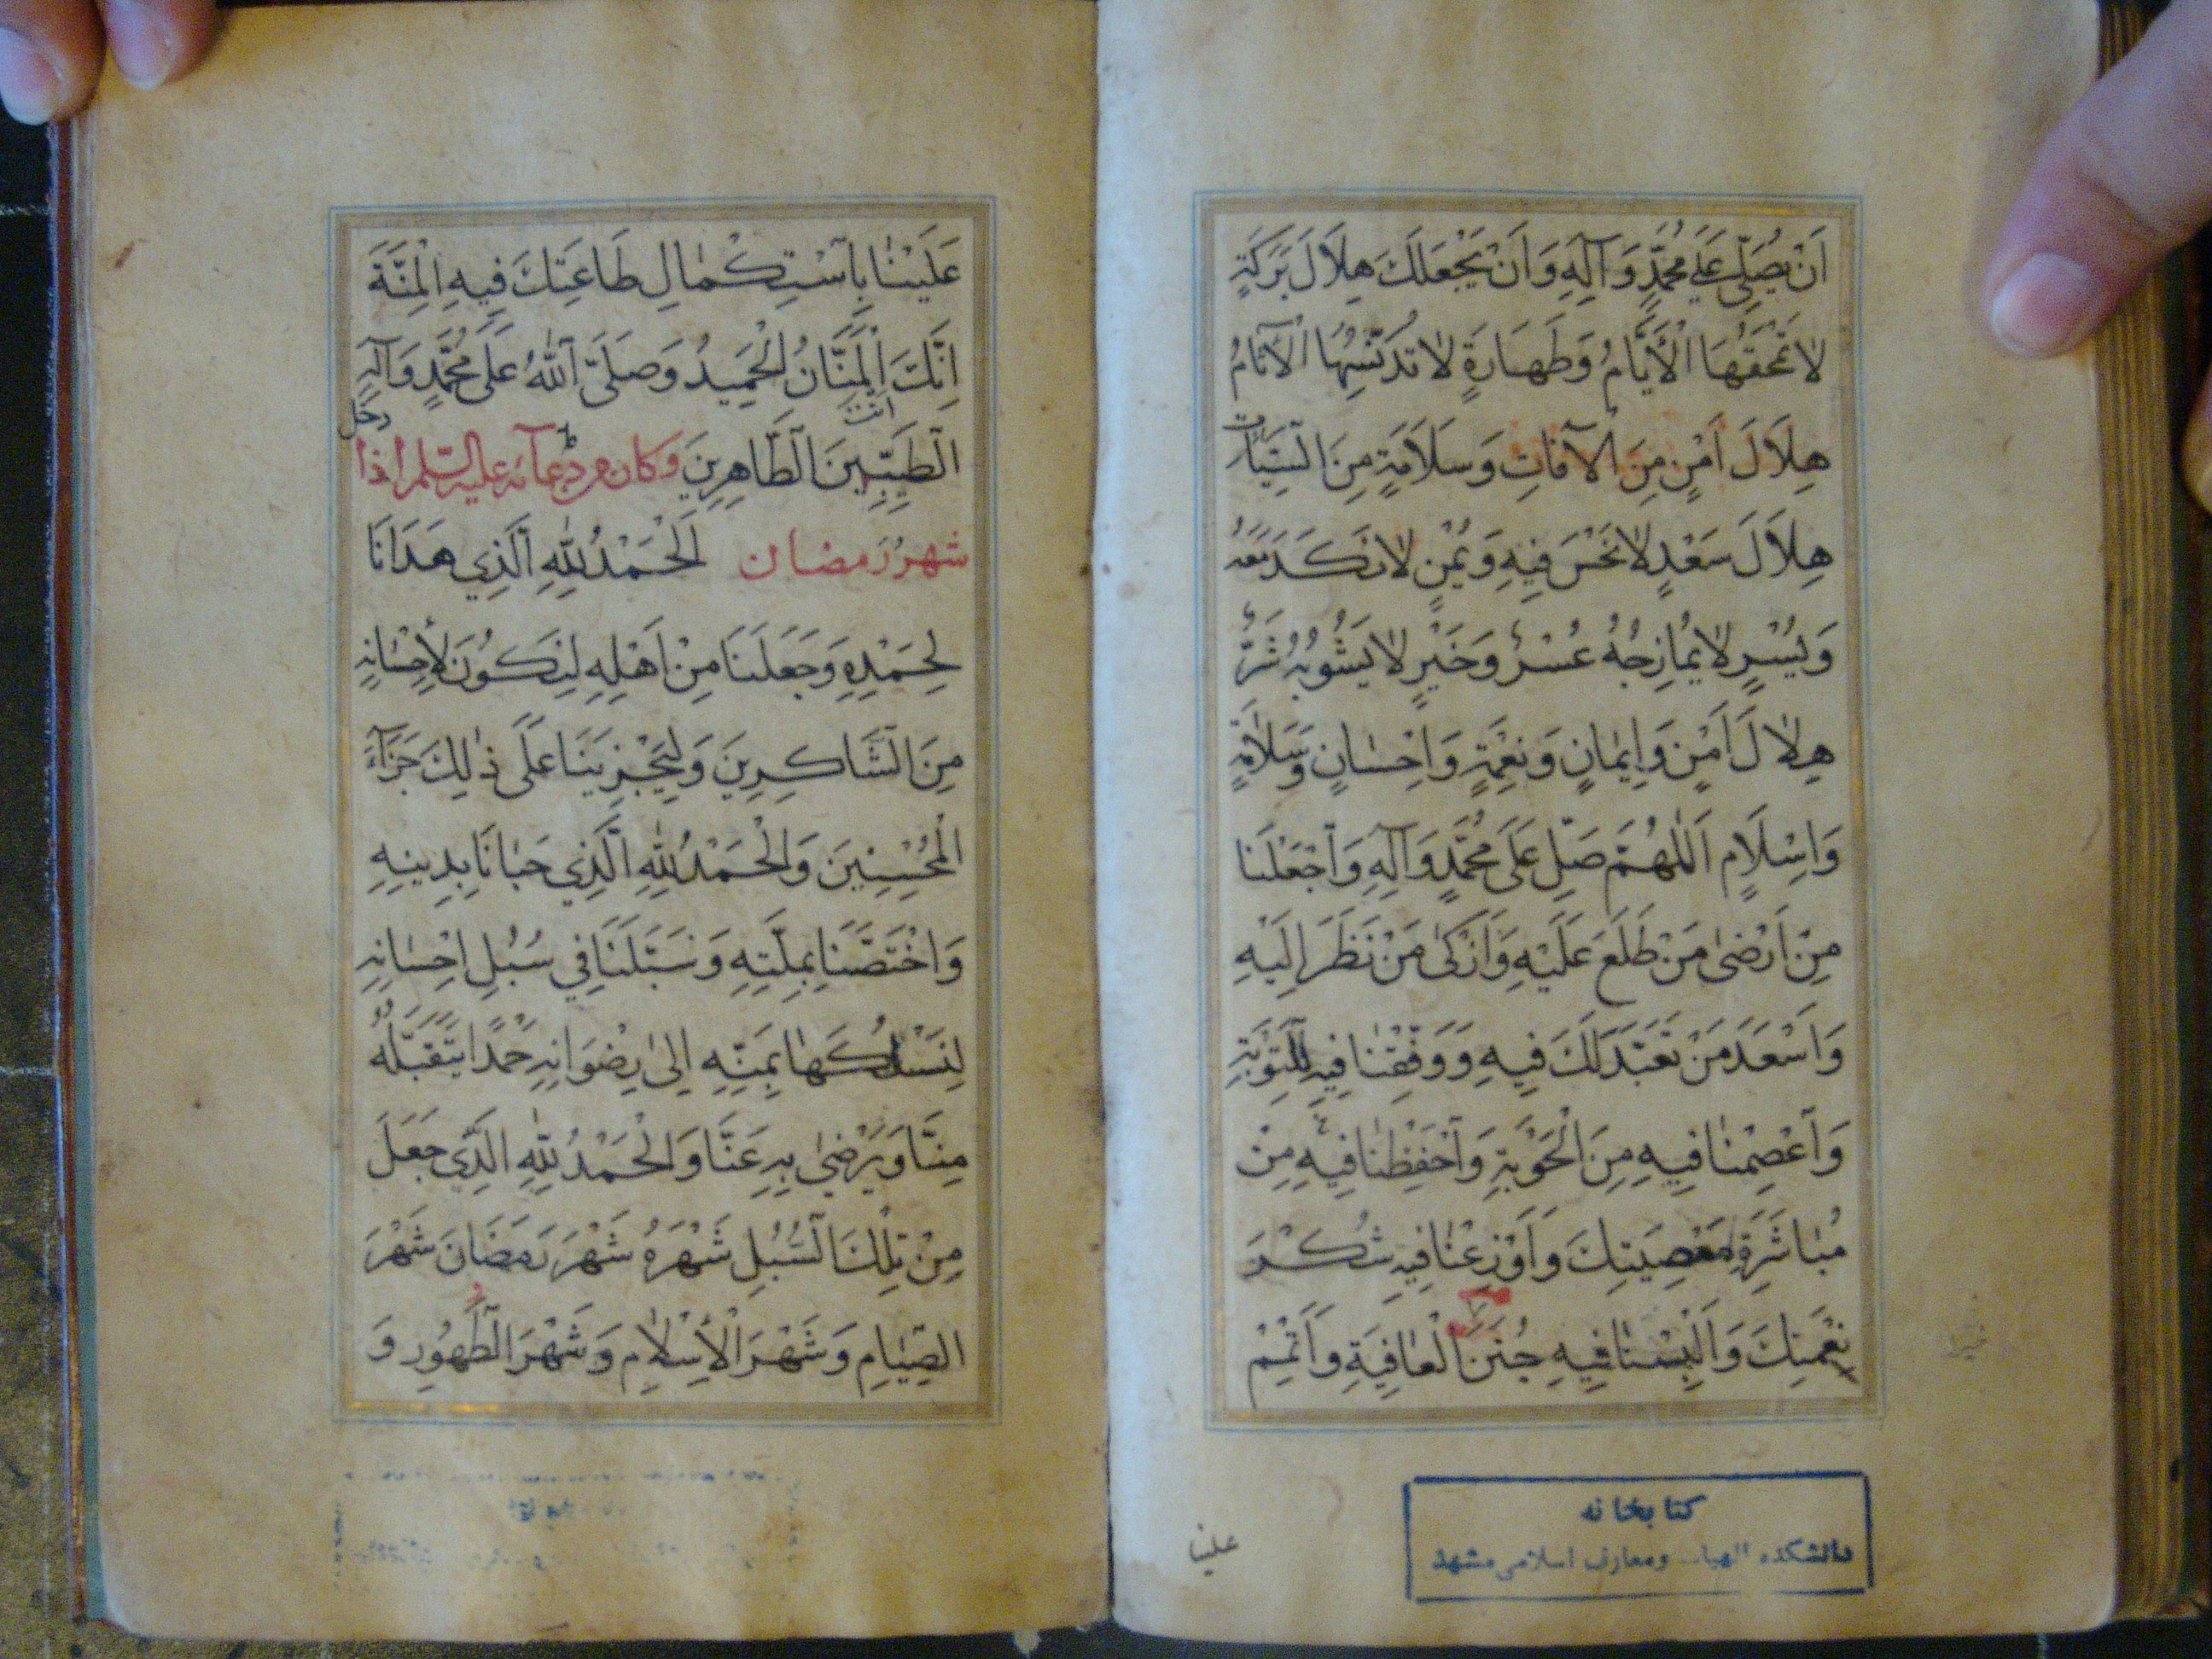 اَنْ يُصَلِّيَ عَلَى مُحَمَّدٍ وَآلِهِ وَاَنْ يَجْعَلَكَ هِلَالَ بَرَكَةٍ
لَا تَمْحَقُهَا الْأَيَّامُ وَطَهَارَةٍ لَا تُدَنِّسُهَا الْآثَامُ
هِلَالَ اَمْنٍ مِنَ الْآفَاتِ وَسَلَامَةٍ مِنَ السَّيِّئَاتِ
هِلَالَ سَعْدٍ لَا نَحْسَ فِيهِ وَيُمْنٍ لَا نَكَدَ مَعَهُ
وَيُسْرٍ لَا يُمَازِجُهُ عُسْرٌ وَخَيْرٍ لَا يَشُوبُهُ شَرٌّ
هِلَالَ اَمْنٍ وَاِيمَانٍ وَنِعْمَةٍ وَاِحْسَانٍ وَسَلَامَةٍ
وَاِسْلَامٍ اَللّٰهُمَّ صَلِّ عَلَى مُحَمَّدٍ وَآلِهِ وَاجْعَلْنَا
مِنْ اَرْضٰى مَنْ طَلَعَ عَلَيْهِ وَاَزْكٰى مَنْ نَظَرَ اِلَيْهِ
وَاَسْعَدَ مَنْ تَعَبَّدَ لَكَ فِيهِ وَوَفِّقْنَا فِيهِ لِلتَّوْبَةِ
وَاعْصِمْنَا فِيهِ مِنَ الْحَوْبَةِ وَاحْفَظْنَا فِيهِ مِنْ
مُبَاشَرَةِ مَعْصِيَتِكَ وَاَوْزِعْنَا فِيهِ شُكْرَ
نِعْمَتِكَ وَاَلْبِسْنَا فِيهِ جُنَنَ الْعَافِيَةِ وَاَتْمِمْ
علينا
كتابخانه
دانشكده الهيات ومعارف اسلامى مشهد
عَلَيْنَا بِاسْتِكْمَالِ طَاعَتِكَ فِيهِ الْمِنَّةَ
اِنَّكَ الْمَنَّانُ الْحَمِيدُ وَصَلَّى اللّٰهُ عَلَى مُحَمَّدٍ وَآلِهِ
انت
الطَّيِّبِينَ الطَّاهِرِينَ وكان من دعائه عليه السلم اذا دخل
شهر رمضان اَلْحَمْدُ لِلّٰهِ الَّذِي هَدَانَا
لِحَمْدِهِ وَجَعَلَنَا مِنْ اَهْلِهِ لِنَكُونَ لِأِحْسَانِهِ
مِنَ الشَّاكِرِينَ وَلِيَجْزِيَنَا عَلَى ذٰلِكَ جَزَآءَ
الْمُحْسِنِينَ وَالْحَمْدُ لِلّٰهِ الَّذِي حَبَانَا بِدِينِهِ
وَاخْتَصَّنَا بِمِلَّتِهِ وَسَبَّلَنَا فِي سُبُلِ اِحْسَانِهِ
لِنَسْلُكَهَا بِمَنِّهِ اِلٰى رِضْوَانِهِ حَمْدًا يَتَقَبَّلُهُ
مِنَّا وَيَرْضٰى بِهِ عَنَّا وَالْحَمْدُ لِلّٰهِ الَّذِي جَعَلَ
مِنْ تِلْكَ السُّبُلِ شَهْرَهُ شَهْرَ رَمَضَانَ شَهْرَ
الصِّيَامِ وَشَهْرَ الْأِسْلَامِ وَشَهْرَ الطَّهُورِ وَ